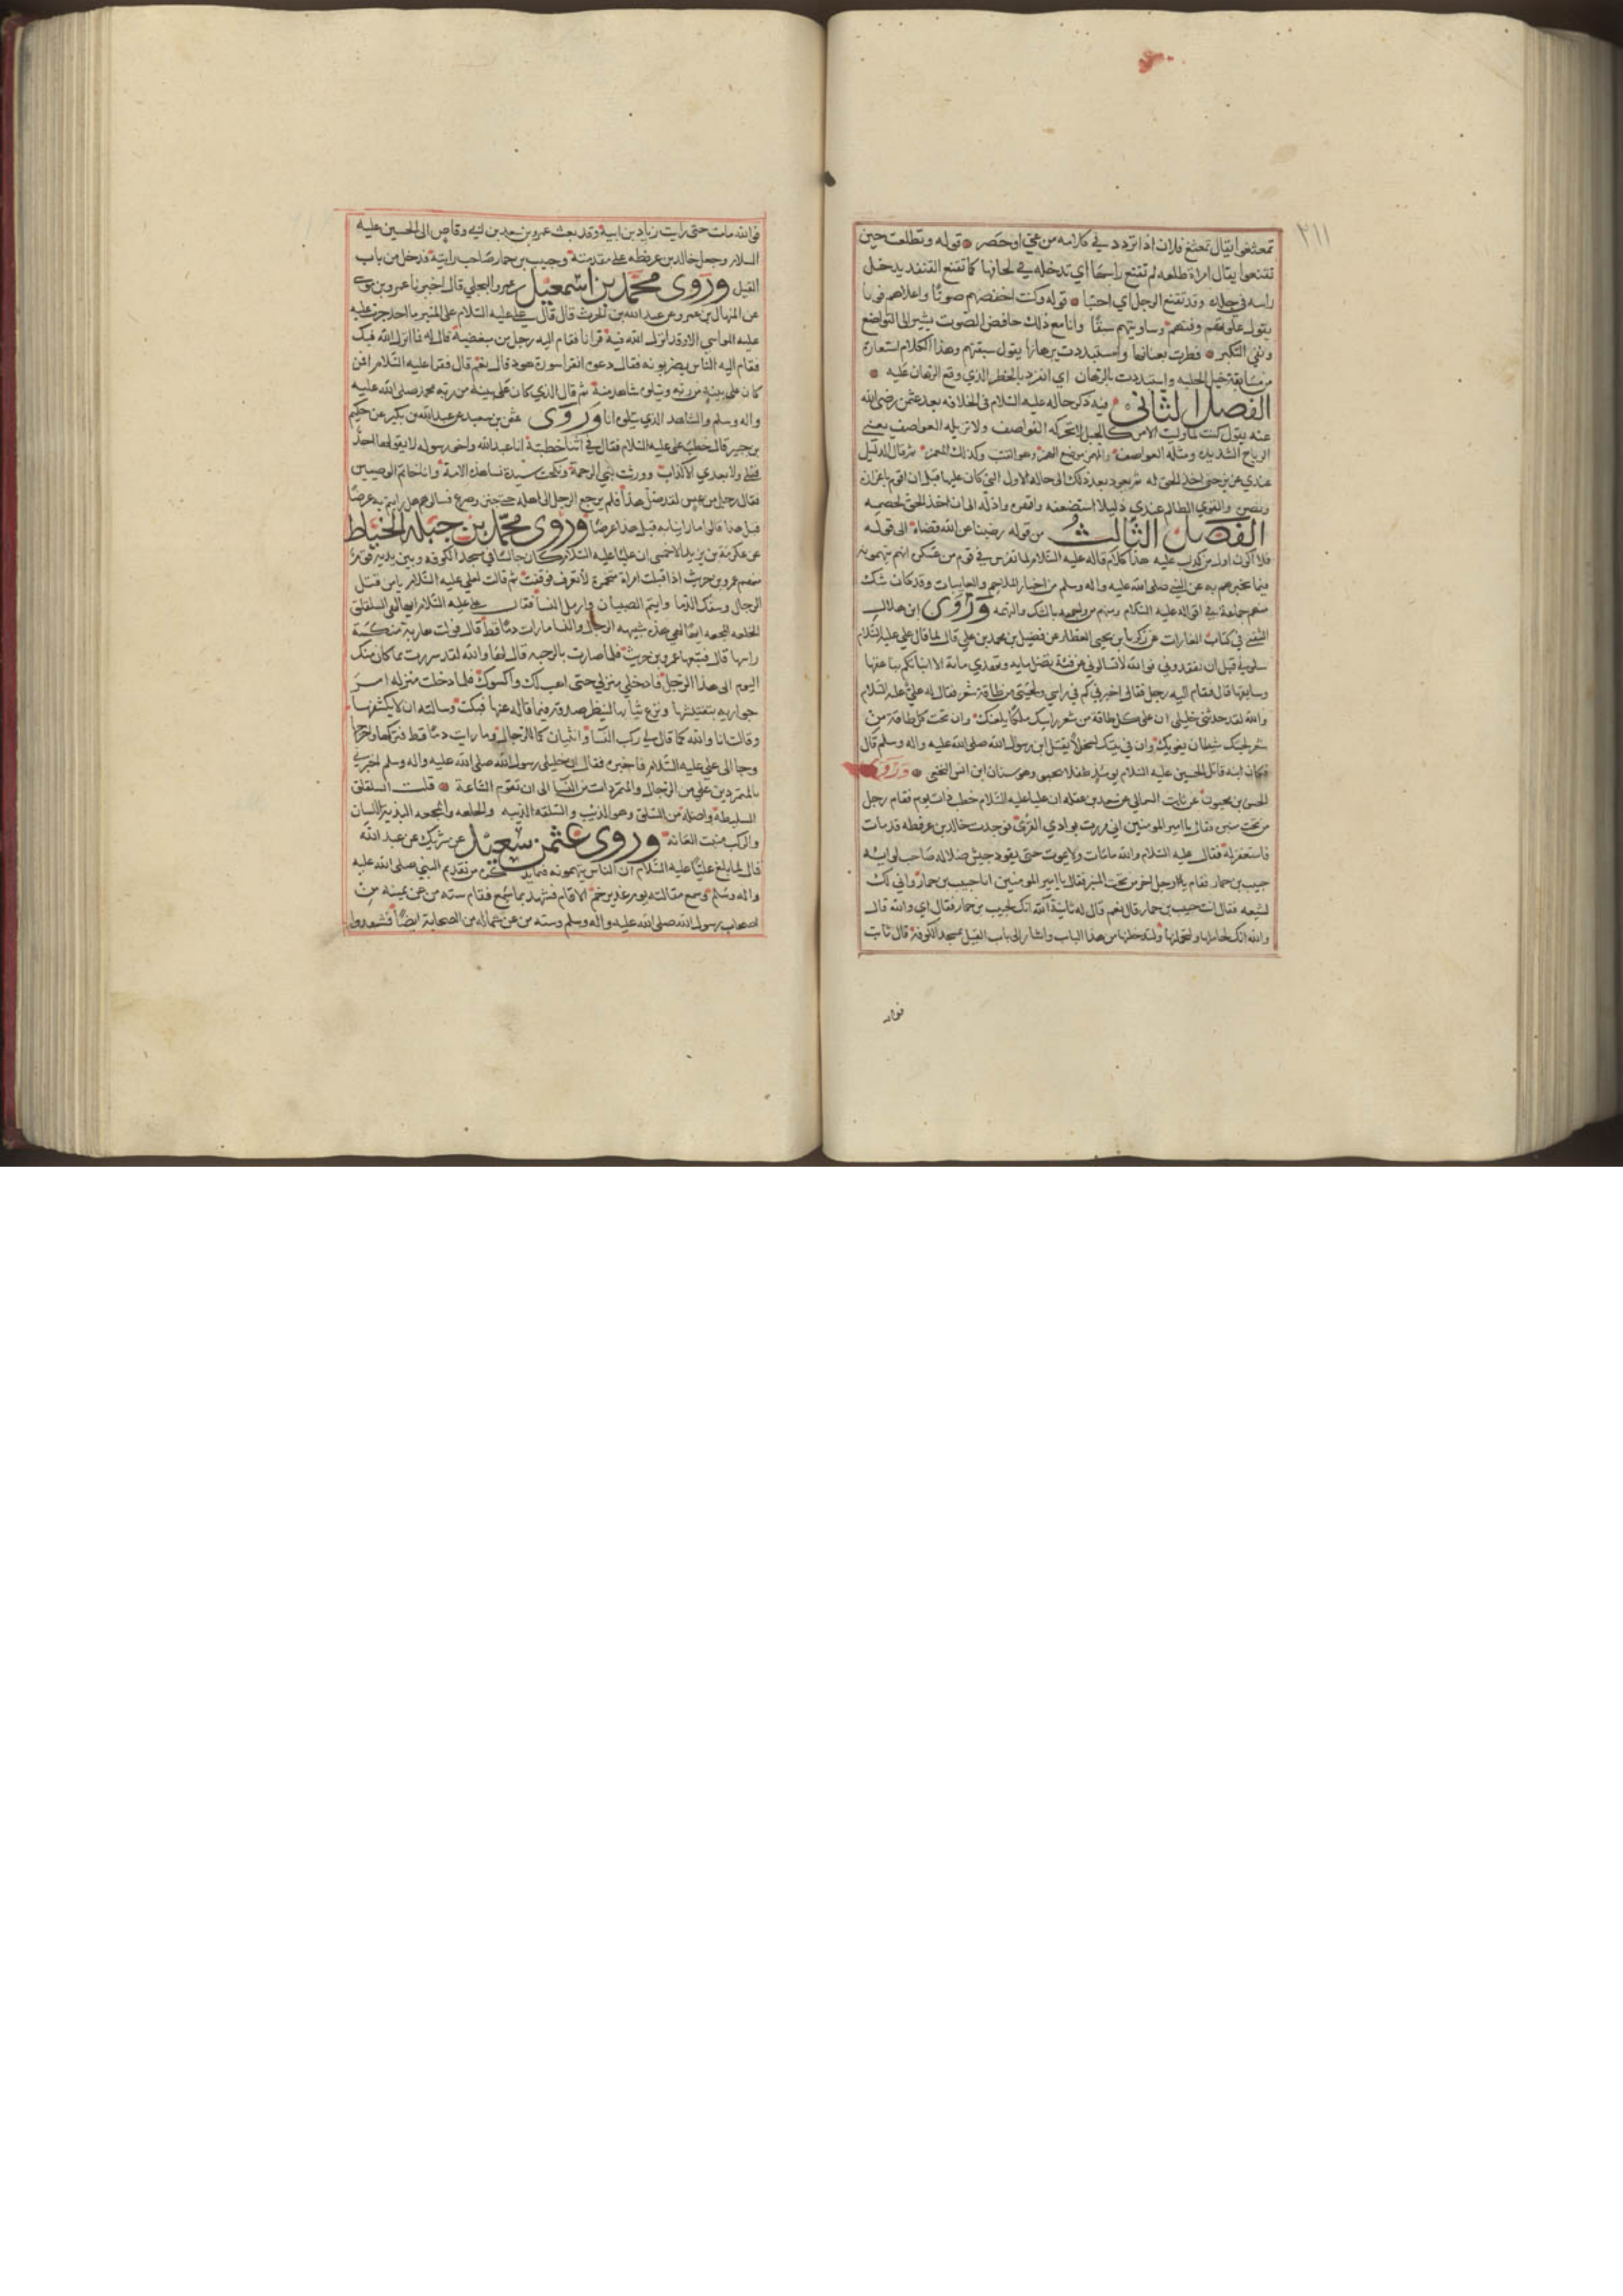 ٢١١
تعتعوا يقال تعتع فلان اذا تردد في كلامه من عي او حصر قوله وتطلعت حين
تقبعوا يقال امراة طلعه لم تقبع راسها اي تدخله في لحافها كما تقبع القنفذ يدخل
راسه في جلده وقد تقبع الرجل اي اختبا قوله وكنت اخفضهم صوتا واعلاهم فوتا
يقول علوتهم وفتهم وساويتهم سبقا وانا مع ذلك خافض الصوت يشير الى التواضع
ونفي التكبر فطرت بعنانها واستبددت برهانها يقول سبقتهم وهذا الكلام استعارة
من مسابقة خيل الحلبه واستبددت بالرهان اي انفرد بالخطر الذي وقع الرهان عليه
الفصل الثاني فيه ذكر حاله عليه السلام في الخلافه بعد عثمن رضي الله
عنه يقول كنت لما وليت الامر كالجبل لا تحركه القواصف ولا تزيله العواصف يعني
الرياح الشديده ومثله العواصف والمهمز موضع الهمز وهو العيب وكذلك المغمز ثم قال الذليل
عندي عزيز حتى اخذ الحق له ثم يعود بعد ذلك الى حاله الاول التي كان عليها قبل ان اقوم باعزازه
ونصره والقوي الظالم عندي ذليلا استضعفه واقهره واذله الى ان اخذ الحق لخصمه
الفصل الثالث من قوله رضينا عن الله قضاه الى قوله
فلا اكون اول من كذب عليه هذا كلام قاله عليه السلام لما تفرس في قوم من عسكره انهم يتهمونه
فيما يخبرهم به عن النبي صلى الله عليه واله وسلم من اخبار الملاحم والغايبات وقد كان شك
منهم جماعة في اقواله عليه السلام ومنهم من واجهه بالشك والتهمه وروى ابن هلال
الثقفي في كتاب الغارات عن زكريا بن يحيى العطار عن فضيل بن محمد بن علي قال لما قال علي عليه السلام
سلوني قبل ان تفقدوني فوالله لا تسالوني عن فئة تضل مايه وتهدي ماية الا انباتكم بناعقها
وسايقها قال فقام اليه رجل فقال اخبرني كم في راسي ولحيتي من طاقة شعر فقال له علي عليه السلام
والله لقد حدثني خليلي ان على كل طاقة من شعر راسك ملكا يلعنك وان تحت كل طاقة من
شعر لحيتك شيطان يغويك وان في بيتك لسخلا يقتل ابن رسول الله صلى الله عليه واله وسلم قال
فكان ابنه قاتل الحسين عليه السلام يومئذ طفلا يحبى وهو سنان ابن انس النخعي وروى
الحسن بن محبوب عن ثابت الثمالي عن سويد بن غفله ان عليا عليه السلام خطب ذات يوم فقام رجل
من تحت منبره فقال يا امير المومنين اني مررت بوادي القرى فوجدت خالد بن عرفطه قد مات
فاستغفر له فقال عليه السلام والله ما مات ولا يموت حتى يقود جيش ضلاله صاحب لوايه
حبيب بن حمار فقام رجل اخر من تحت المنبر فقال يا امير المومنين انا حبيب بن حمار واني لك
لشيعه فقال انت حبيب بن حمار قال نعم قال له ثانية الله انك لحبيب بن حمار فقال اي والله قال
والله انك لحاملها ولتحملنها ولتدخلنها من هذا الباب واشار الى باب الفيل بمسجد الكوفة قال ثابت
فوالله
فوالله ما مت حتى رايت زياد بن ابيه وقد بعث عمرو بن سعد بن ابي وقاص الى الحسين عليه
السلام وجعل خالد بن عرفطه على مقدمته وحبيب بن حمار صاحب رايته فدخل من باب
الفيل وروى محمد بن اسمعيل عمرو البجلي قال اخبرنا عمرو بن موسى
عن المنهال بن عمرو عن عبد الله بن الحرث قال قال علي عليه السلام على المنبر ما احد جرت عليه
عليه المواسي الا وقد انزل الله فيه قرانا فقام اليه رجل من مبغضيه قال له فما انزل الله فيك
فقام اليه الناس يضربونه فقال دعوه اتقرا سورة هود قال نعم قال فقرا عليه السلام افمن
كان على بينه من ربه ويتلوه شاهد منه ثم قال الذي كان على بينة من ربه محمد صلى الله عليه
واله وسلم والشاهد الذي يتلوه انا وروى عثمن بن سعيد عن عبد الله بن بكير عن حكيم
بن جبير قال خطب علي عليه السلام فقال في اثنا خطبته انا عبد الله واخو رسوله لا يقولها احد
قبلي ولا بعدي الا كذاب وورثت نبي الرحمة ونكحت سيدة نسا هذه الامة وانا خاتم الوصيين
فقال رجل من عبس لقد ضل هذا فلم يرجع الرجل الى اهله حتى جن وصرع فسالوهم هل رايتم به عرضا
قبل هذا قالوا ما راينا به قبل هذا عرضا وروى محمد بن جبله الخياط
عن عكرمة بن يزيد الاحمسي ان عليا عليه السلام كان جالسا في مسجد الكوفه وبين يديه قوم
منهم عمرو بن حريث اذا قبلت امراة مختمرة لا تعرف فوقفت ثم قالت لعلي عليه السلام يا من قتل
الرجال وسفك الدما وايتم الصبيان وارمل النسا فقال علي عليه السلام انها لهي السلقلق
الخلعه المجعه انها لهي هذه شبيهه الرجال والنسا ما رات دما قط قال فولت هاربة منكسة
راسها قال فتبعها عمرو بن حريث فلما صارت بالرحبه قال لها والله لقد سررت بما كان منك
اليوم الى هذا الرجل فادخلي منزلي حتى اهب لك واكسوك فلما دخلت منزله امر
جواريه بتفتيشها ونزع ثيابها لينظر صدقه فيما قاله عنها فبكت وسالته ان لا يكشفها
وقالت انا والله كما قال لي ركب النسا وانثيان كما للرجال وما رايت دما قط فتركها واخرجها
وجا الى علي عليه السلام فاخبره فقال ان خليلي رسول الله صلى الله عليه واله وسلم اخبرني
بالمتمردين علي من الرجال والمتمردات من النسا الى ان تقوم الساعة قلت السلقلق
السليطة واصله من السلق وهو الذيب والسلقه الذيبه والخلعه والمجعه البذية اللسان
والركب منبت العانه وروى عثمن سعيد عن شريك عن عبد الله
قال لما بلغ عليا عليه السلام ان الناس يتهمونه فيما يذكره من تقديم النبي صلى الله عليه
واله وسلم وسمع مقالته يوم غدير خم الا قام فشهد بما سمع فقام سته من عن يمينه من
اصحاب رسول الله صلى الله عليه واله وسلم وسته من عن شماله من الصحابة ايضا فشهدوا